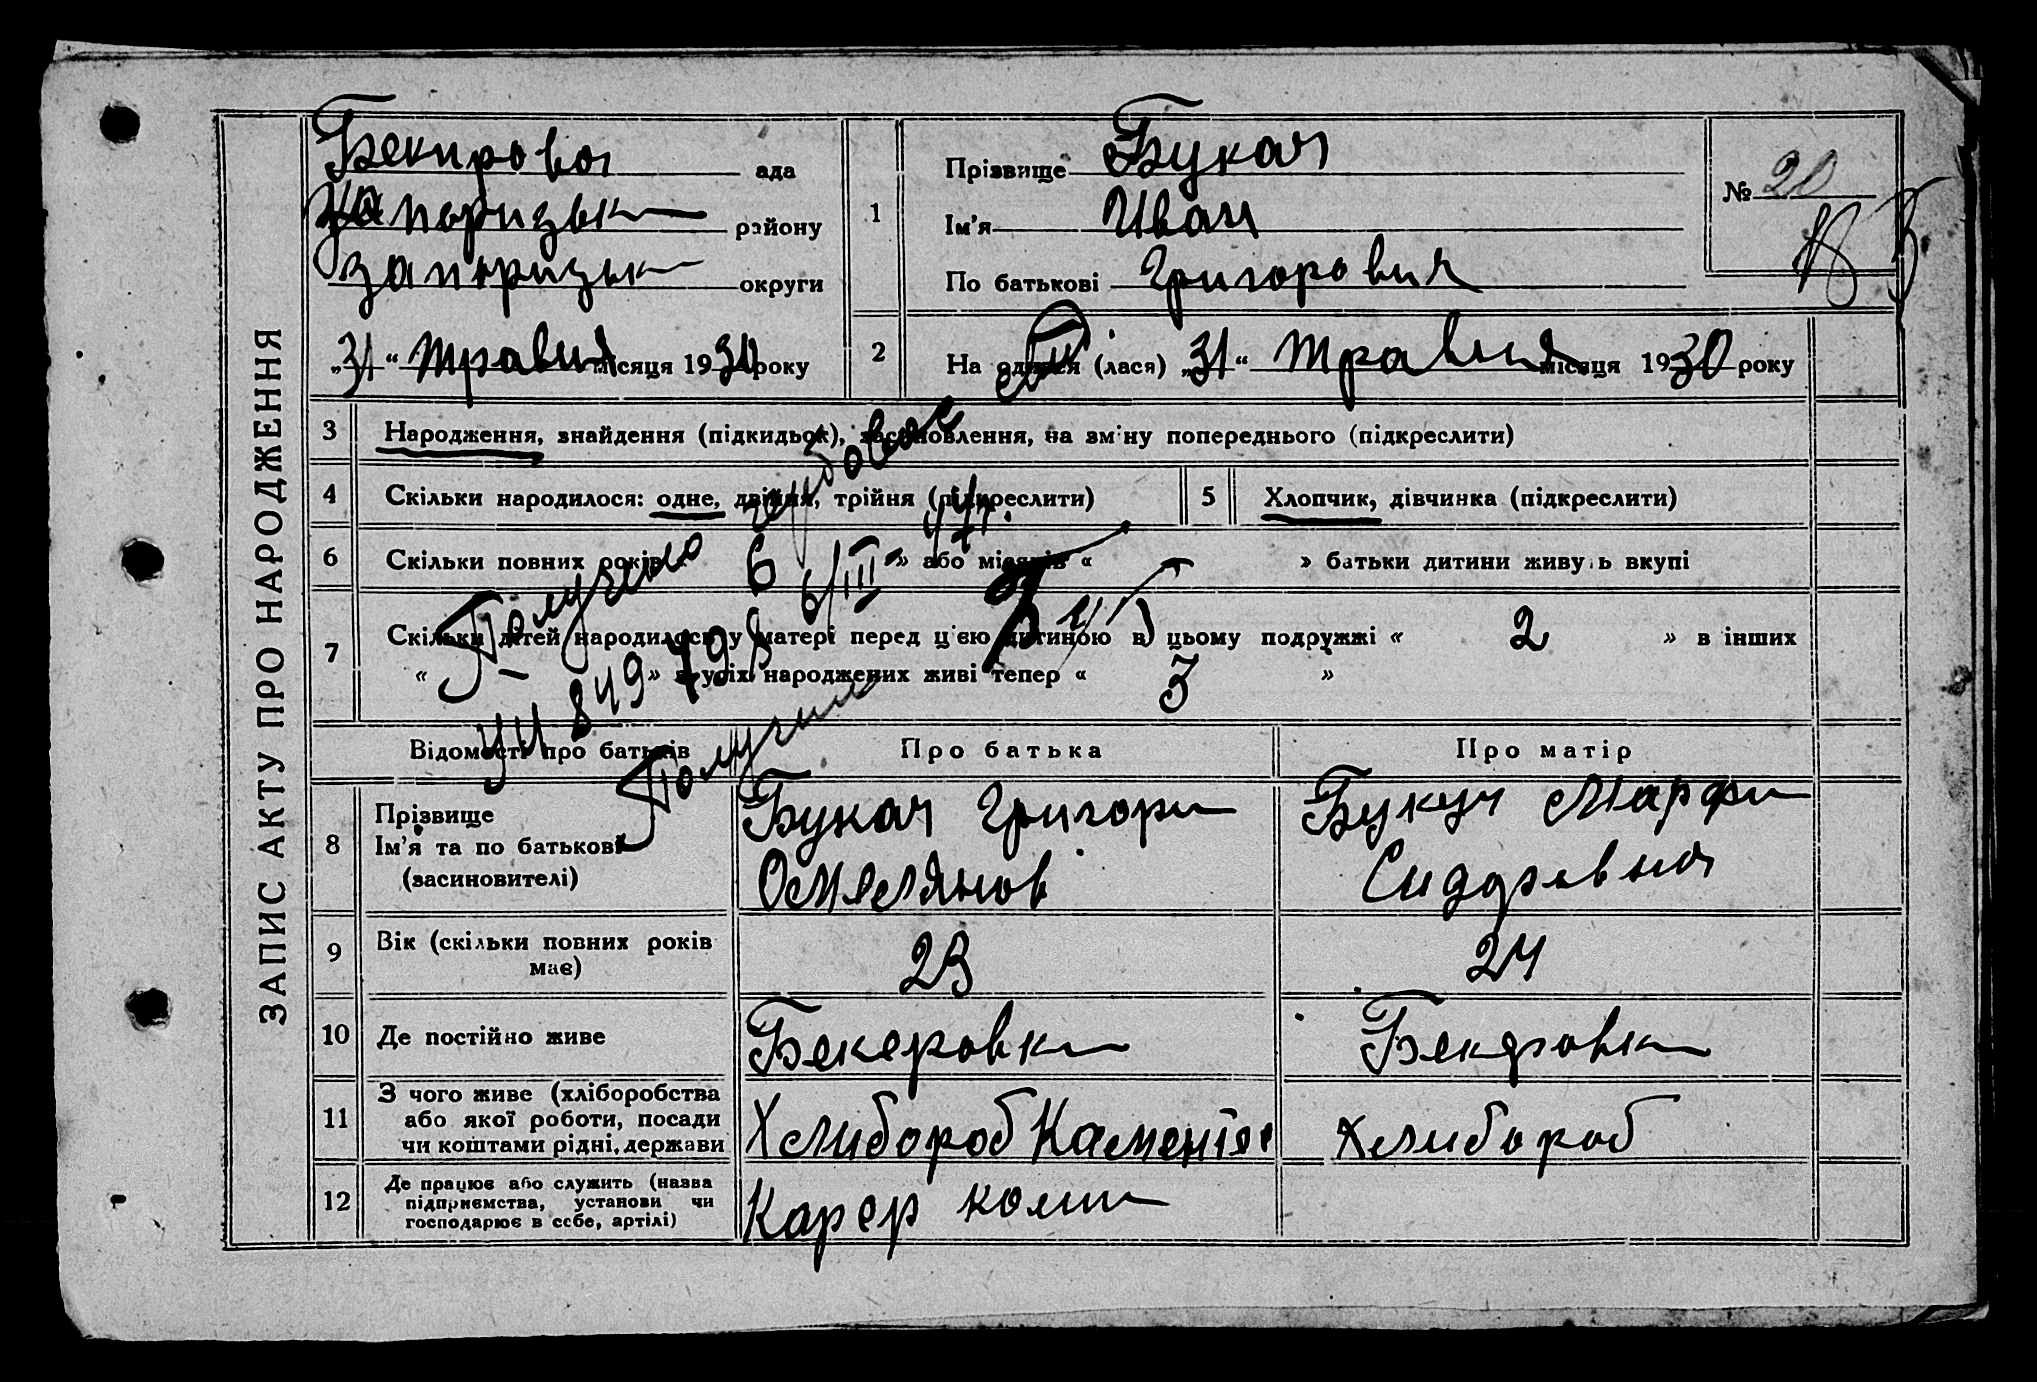 ЗАПИС АКТУ ПРО НАРОДЖЕННЯ
Бекирова ада
Запоризьк району
Запоризьк округи
„31“ Травня місяця 1930 року
1
Прізвище Букач
Ім'я Иван
По батькові Григорович
№ 20
2 На одився (лася) „31“ Травня місяця 1930 року
3 Народження, знайдення (підкидьок), засиновлення, на зміну попереднього (підкреслити)
4 Скільки народилося: одне, двійня, трійня (підкреслити)
5 Хлопчик, дівчинка (підкреслити)
6 Скільки повних років 6 » або місяців « » батьки дитини живуть вкупі
7 Скільки дітей народилося у матері перед ц'єю дитиною в цьому подружжі « 2 » в інших
« » з усіх народжених живі тепер « 3 »
Получено
6/III-47г.
849798
Получил
Відомості про батьків Про батька Про матір
8 Прізвище
Ім'я та по батькові
(засиновителі)
Букач Григори
Омелянов
Букуч Марфи
Сидоревна
9 Вік (скільки повних років
має)
23 24
10 Де постійно живе Бекеровка Бекеровка
11 З чого живе (хліборобства
або якої роботи, посади
чи коштами рідні, держави
Хлибороб Каменяр Хлибороб
12 Де працює або служить (назва
підприємства, установи чи
господарює в себе, артілі)
Карер